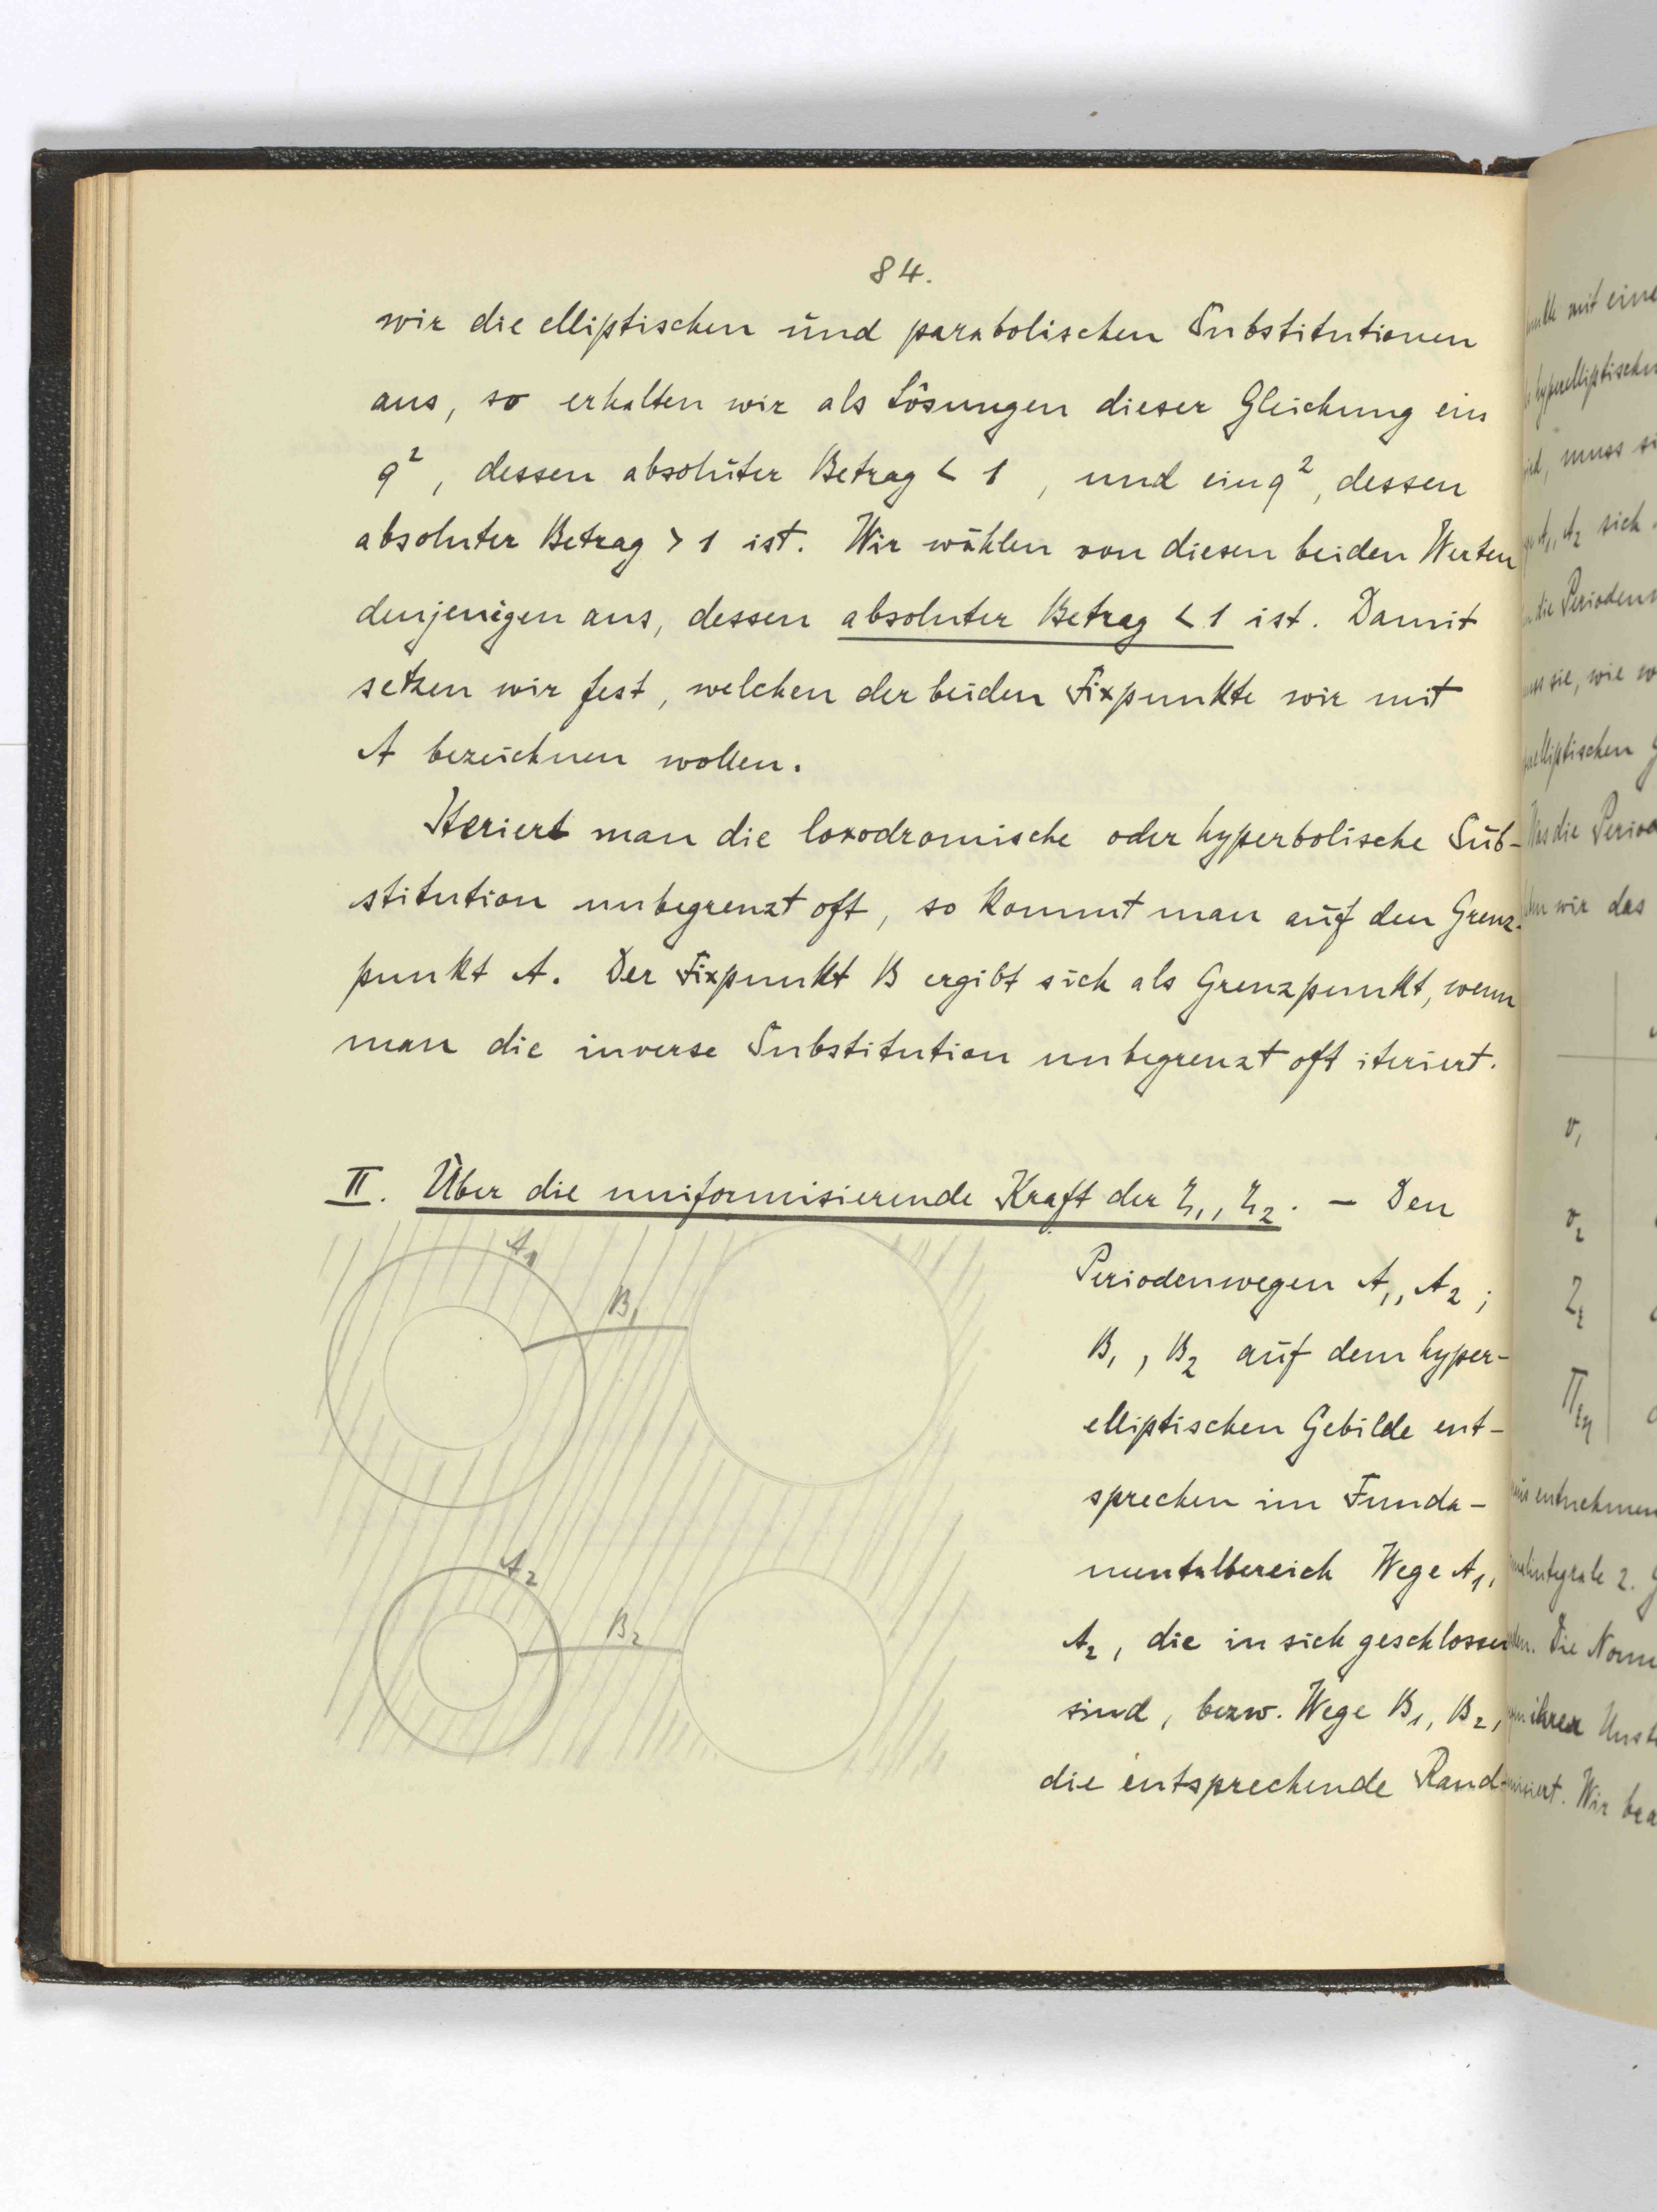 84.
wir die elliptischen und parabolischen Substitutionen
aus, so erhalten wir als Lösungen dieser Gleichung ein
q², dessen absoluter Betrag < 1, und ein q², dessen
absoluter Betrag > 1 ist. Wir wählen von diesen beiden Werten
denjenigen aus, dessen absoluter Betrag < 1 ist. Damit
setzen wir fest, welchen der beiden Fixpunkte wir mit
A bezeichnen wollen.
Iteriert man die loxodromische oder hyperbolische Sub-
stitution unbegrenzt oft, so kommt man auf den Grenz-
punkt A. Der Fixpunkt B ergibt sich als Grenzpunkt, wenn
man die inverse Substitution unbegrenzt oft iteriert.
II. Über die uniformisierende Kraft der ζ₁, ζ₂. – Den
Periodenwegen A₁, A₂;
B₁, B₂ auf dem hyper-
elliptischen Gebilde ent-
sprechen im Funda-
mentalbereich Wege A₁,
A₂, die in sich geschlossen
sind, bezw. Wege B₁, B₂,
die entsprechende Rand-
A₁
B₁
A₂
B₂
mit eine
hyperelliptischen
muss si
A₁, A₂ sich
die Perioden
sie, wie w
elliptischen
die Period
wir das
v₁
v₂
entnehmen
integrale 2.
Die Norm
ihrer
Wir bea